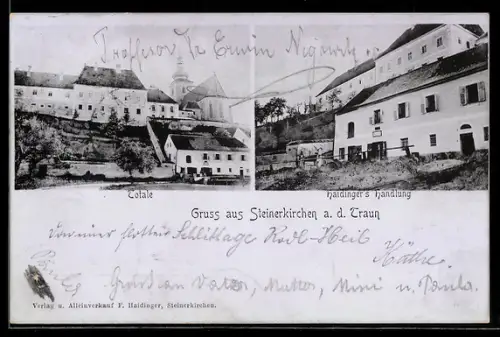 Professor Erwin
Totale
Haidinger's Handlung
Gruss aus Steinerkirchen a. d. Traun
Schlittage Rodl-Heil
Käthe.
Gruß an Vater, Mutter, Mini u. Paula.
Verlag u. Alleinverkauf F. Haidinger, Steinerkirchen.